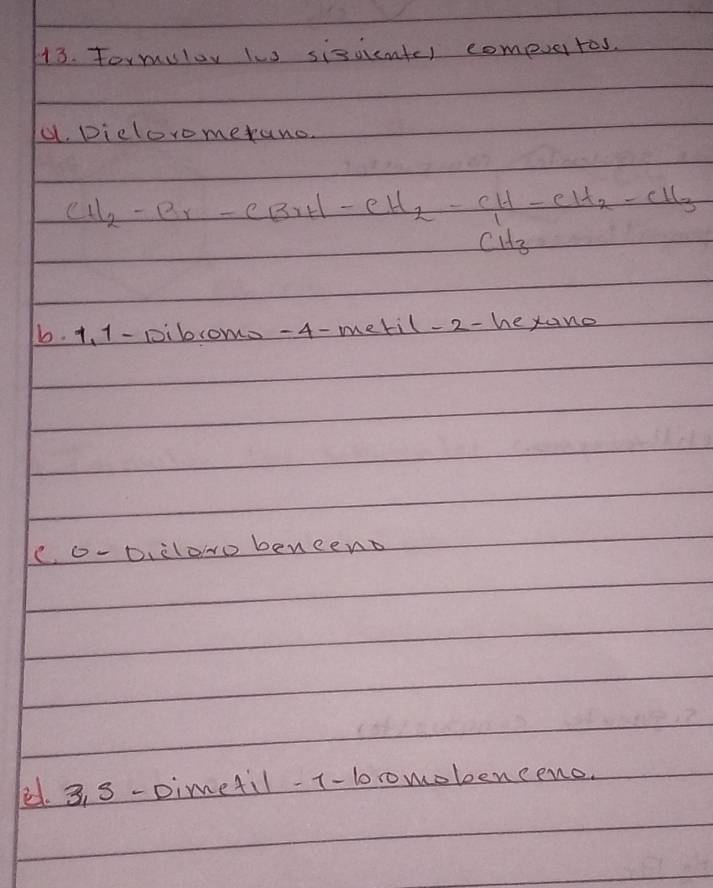 13. Formular los siguientes compuestos.
a. Diclorometano.
CH₂ - Br - CBrH - CH₂ - CH - CH₂ - CH₃
CH₃
b. 1,1-Dibromo-4-metil-2-hexano
c. o-Dicloro benceno
d. 3,5-Dimetil-1-bromobenceno.